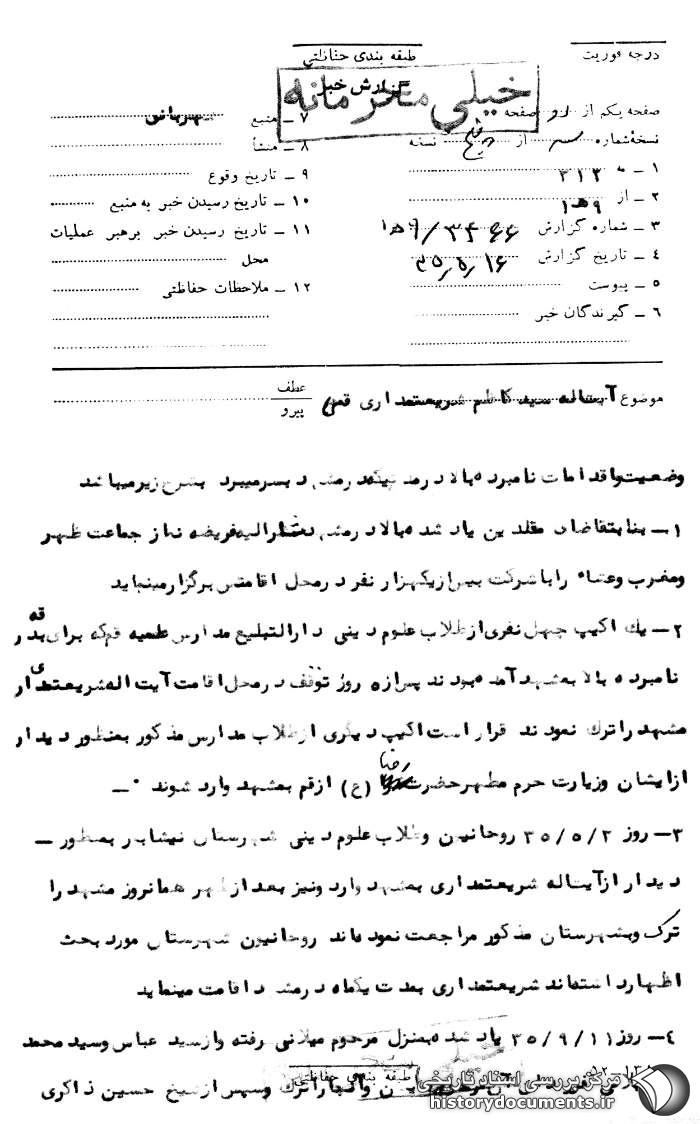 درجه فوریت
طبقه بندی حفاظتی
گزارش خبر
خیلی محرمانه
صفحه یکم از دو صفحه
نسخه شماره از پنج نسخه
۱ ـ به ۳۱۲
۲ ـ از ۱۵۹
۳ ـ شماره گزارش ۱۵۹/۳۴۶۶
۴ ـ تاریخ گزارش ۳۵/۵/۱۶
۵ ـ پیوست
۶ ـ گیرندگان خبر
۷ ـ منبع شهربانی
۸ ـ منشأ
۹ ـ تاریخ وقوع
۱۰ ـ تاریخ رسیدن خبر به منبع
۱۱ ـ تاریخ رسیدن خبر برهبر عملیات
محل
۱۲ ـ ملاحظات حفاظتی
موضوع آیت‌اله سید کاظم شریعتمداری قمی
عطف
پیرو
وضعیت و اقدامات نامبرده بالا در مدتیکه در مشهد بسر میبرد بشرح زیر میباشد
۱ـ بنا بتقاضای مقلدین یاد شده بالا در مشهد مشارالیه فریضه نماز جماعت ظهر
و مغرب و عشاء را با شرکت بیش از یکهزار نفر در محل اقامتش برگزار مینماید
۲ـ یک اکیپ چهل نفری از طلاب علوم دینی دارالتبلیغ مدارس علمیه قم که برای بدرقه
نامبرده بالا به مشهد آمده بودند پس از ۵ روز توقف در محل اقامت آیت اله شریعتمداری
مشهد را ترک نمودند قرار است اکیپ دیگری از طلاب مدارس مذکور بمنظور دیدار
از ایشان و زیارت حرم مطهر حضرت رضا (ع) از قم بمشهد وارد شوند ۰ـ
۳ـ روز ۳۵/۵/۲ روحانیون و طلاب علوم دینی شهرستان نیشابور بمنظور ـ
دیدار از آیت‌اله شریعتمداری بمشهد وارد و نیز بعد از ظهر همانروز مشهد را
ترک و بشهرستان مذکور مراجعت نموده‌اند روحانیون شهرستان مورد بحث
اظهار داشته‌اند شریعتمداری بمدت یکماه در مشهد اقامت مینماید
۴ـ روز ۳۵/۹/۱۱ یاد شده بمنزل مرحوم میلانی رفته و از سید عباس و سید محمد
و آنجا را ترک و سپس از شیخ حسین ذاکری
طبقه بندی حفاظتی
مرکز بررسی اسناد تاریخی
historydocuments.ir